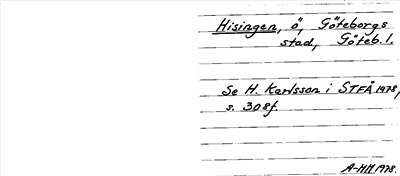 Hisingen, ö, Göteborgs
stad, Göteb. l.
Se H. Karlsson i STFÅ 1978,
s. 308f.
A-MH 1978.